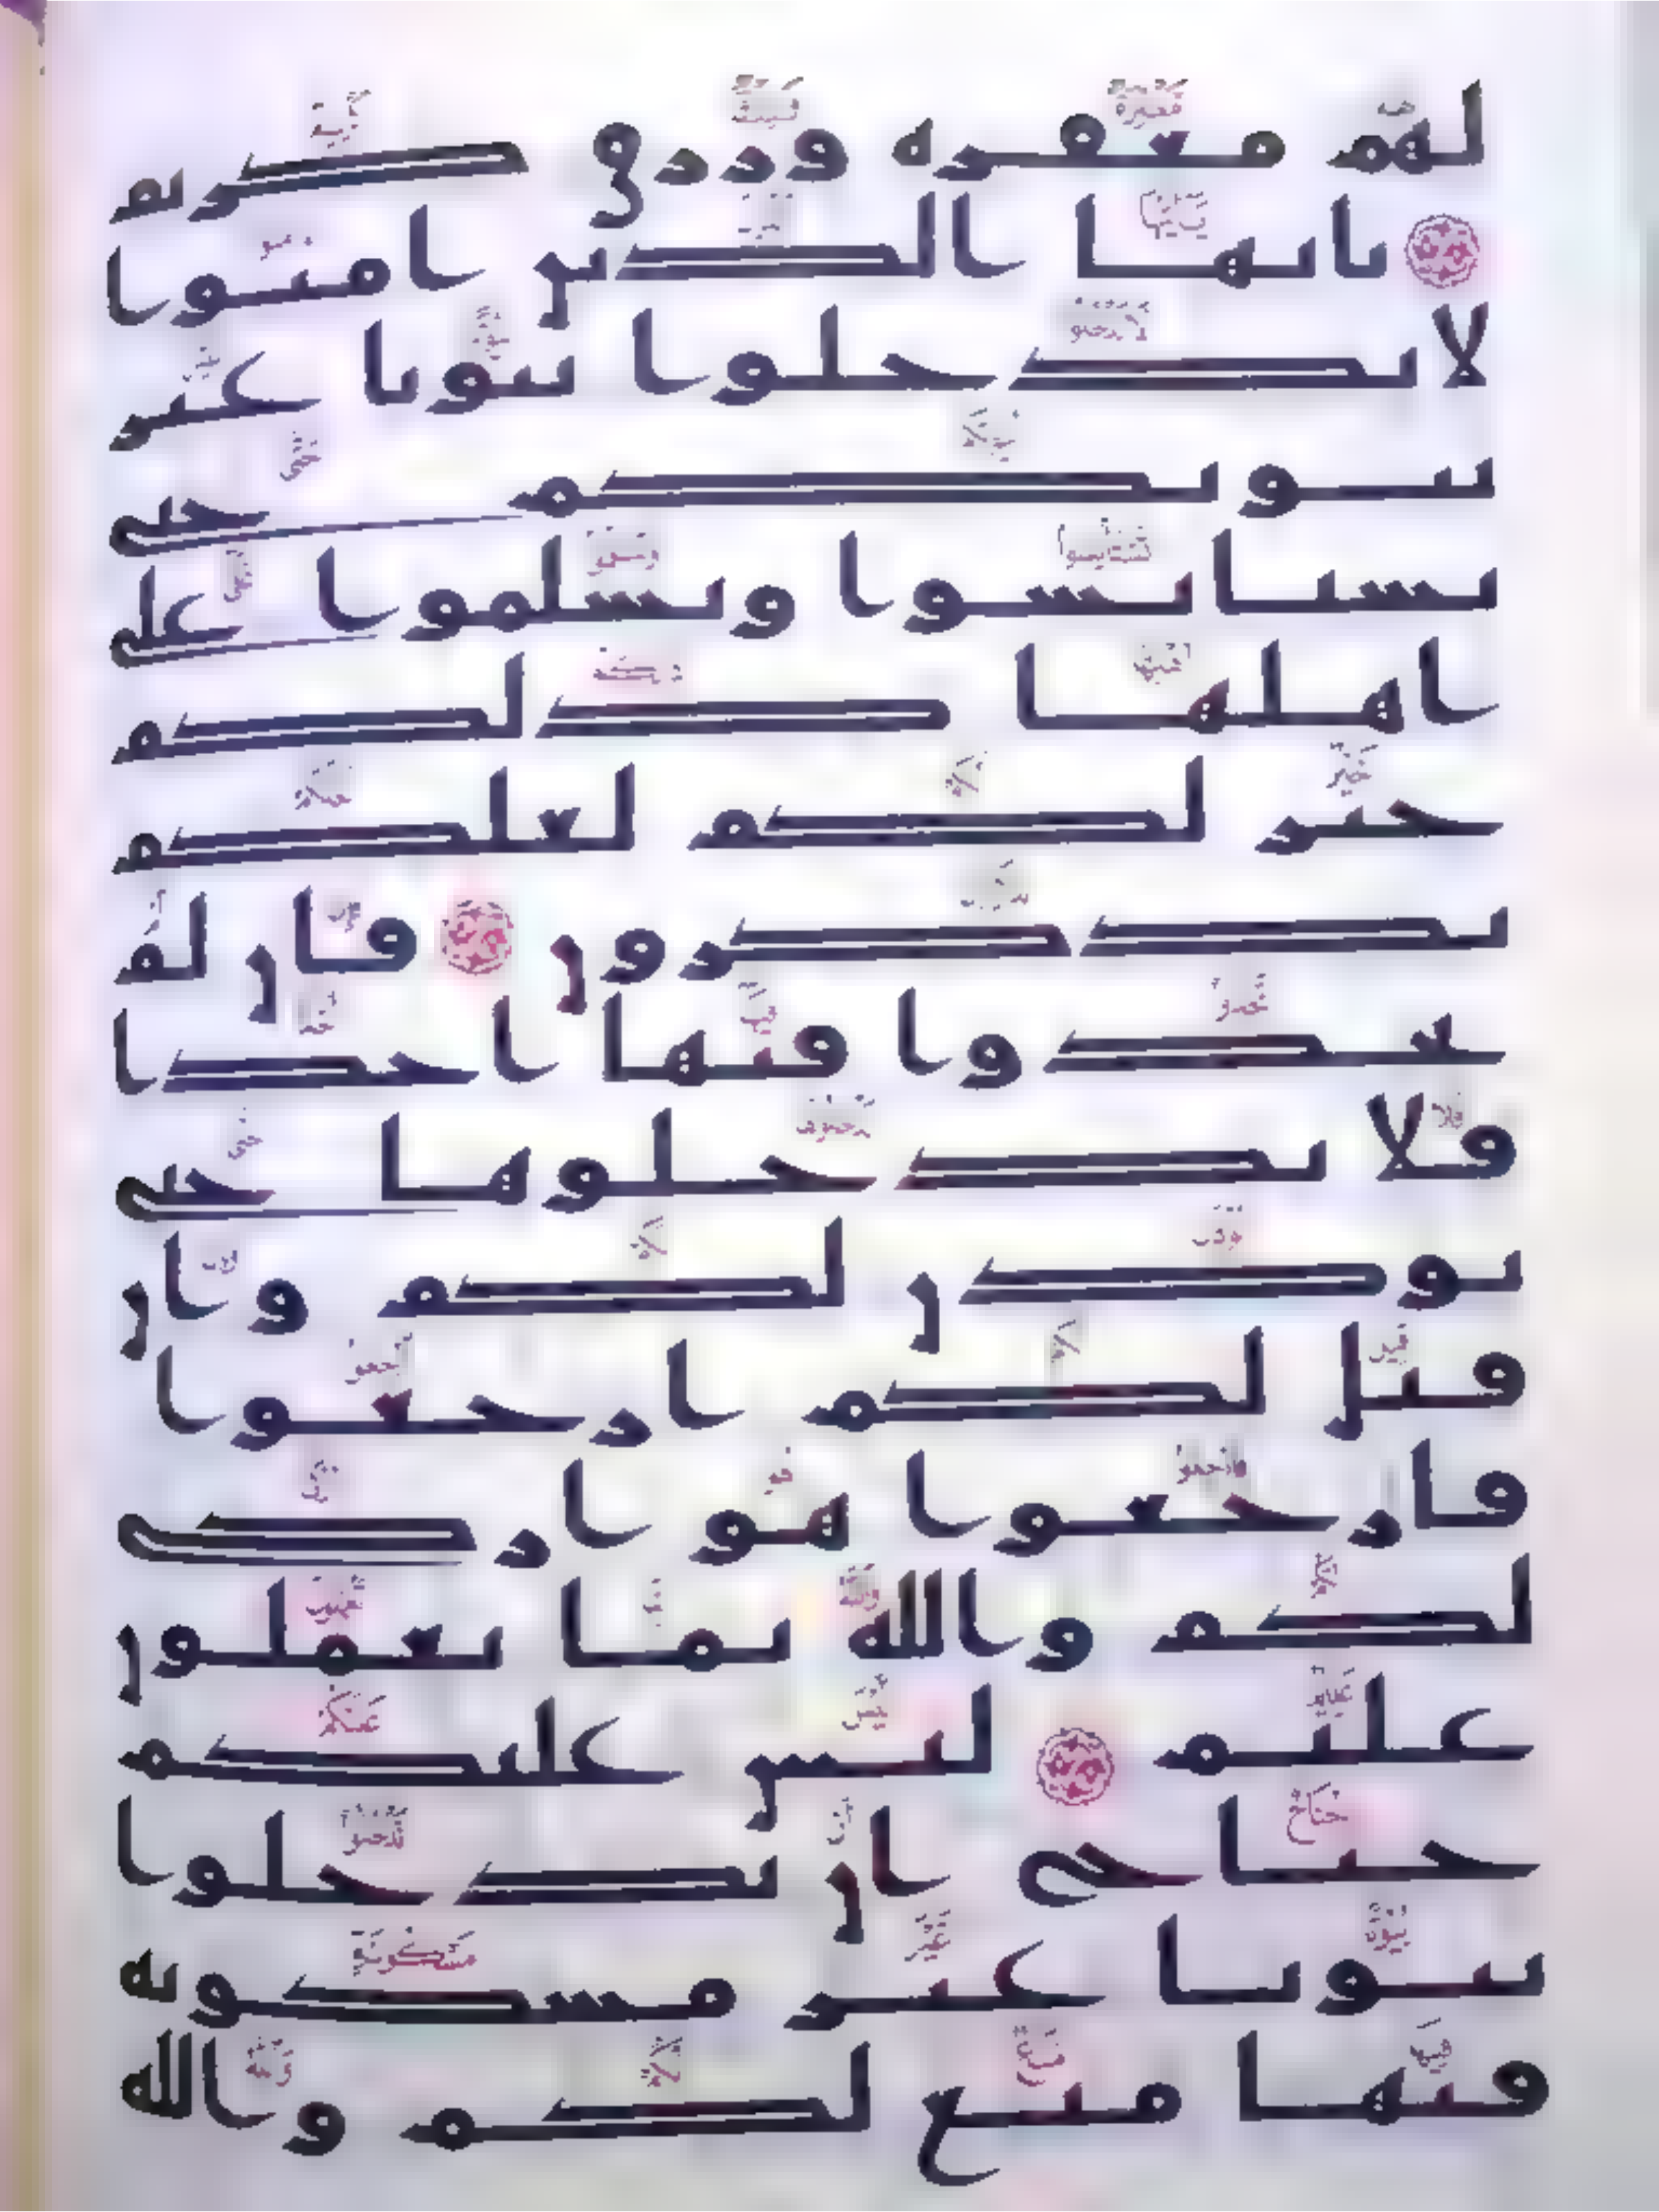 لهم مغفرة ورزق كريم
يايها الذين امنوا
لا تدخلوا بيوتا غير
بيوتكم حتى
تستانسوا وتسلموا على
اهلها ذلكم
خير لكم لعلكم
تذكرون فان لم
تجدوا فيها احدا
فلا تدخلوها حتى
يوذن لكم وان
قيل لكم ارجعوا
فارجعوا هو ازكى
لكم والله بما تعملون
عليم ليس عليكم
جناح ان تدخلوا
بيوتا غير مسكونة
فيها متع لكم والله